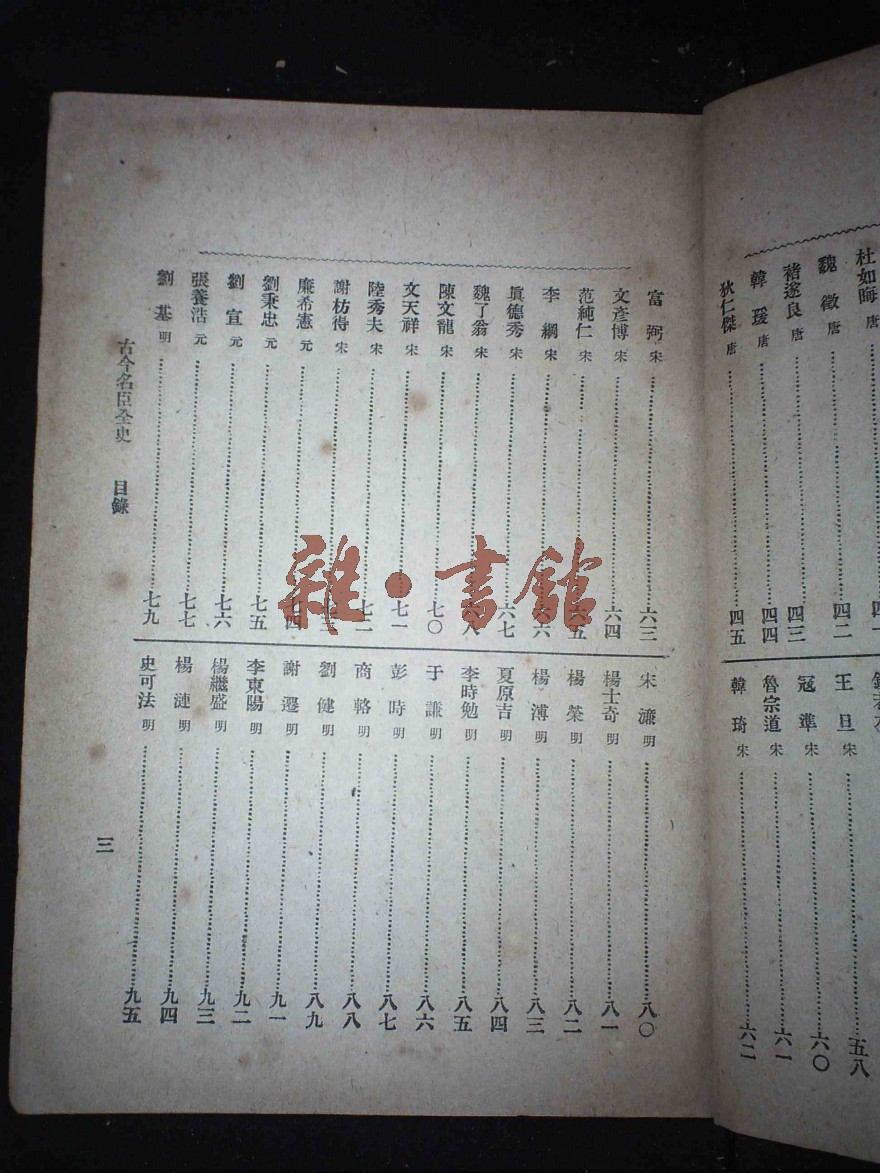 杜如晦 唐……四一
魏徵 唐……四二
褚遂良 唐……四三
韓瑗 唐……四四
狄仁傑 唐……四五
王旦 宋……五八
寇準 宋……六〇
魯宗道 宋……六一
韓琦 宋……六二
富弼 宋……六三
文彥博 宋……六四
范純仁 宋……六五
李綱 宋……六六
眞德秀 宋……六七
魏了翁 宋……六八
陳文龍 宋……七〇
文天祥 宋……七一
陸秀夫 宋……七二
謝枋得 宋……七三
廉希憲 元……七四
劉秉忠 元……七五
劉宣 元……七六
張養浩 元……七七
劉基 明……七九
宋濂 明……八〇
楊士奇 明……八一
楊榮 明……八二
楊溥 明……八三
夏原吉 明……八四
李時勉 明……八五
于謙 明……八六
彭時 明……八七
商輅 明……八八
劉健 明……八九
謝遷 明……九一
李東陽 明……九二
楊繼盛 明……九三
楊漣 明……九四
史可法 明……九五
古今名臣全史 目錄
三
雜·書館